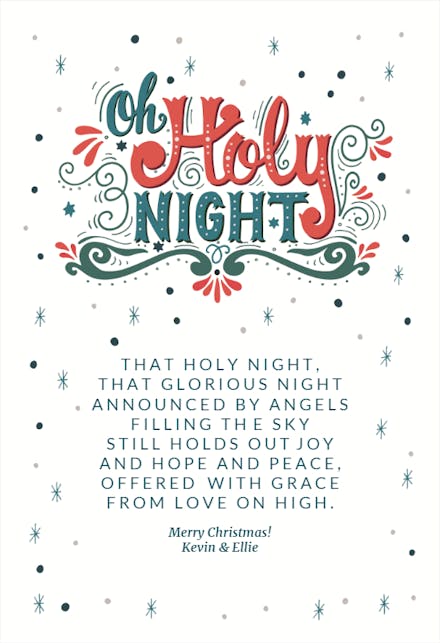 Oh Holy
NIGHT
THAT HOLY NIGHT,
THAT GLORIOUS NIGHT
ANNOUNCED BY ANGELS
FILLING THE SKY
STILL HOLDS OUT JOY
AND HOPE AND PEACE,
OFFERED WITH GRACE
FROM LOVE ON HIGH.
Merry Christmas!
Kevin & Ellie